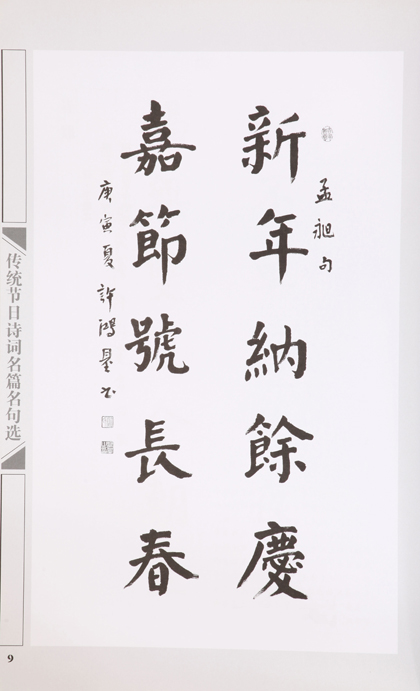 孟昶句
新年納餘慶
嘉節號長春
庚寅夏許鴻基书
传统节日诗词名篇名句选
9